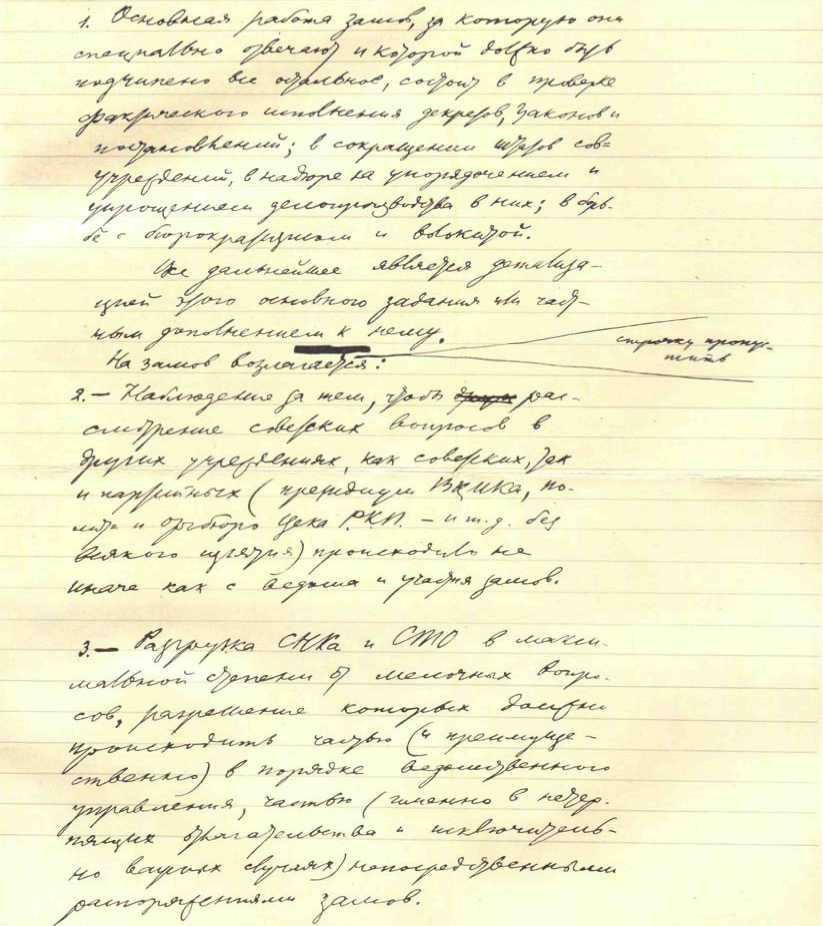 1. Основная работа замов, за которую они
специально отвечают и которой должно быть
подчинено все остальное, состоит в проверке
фактического исполнения декретов, законов и
постановлений; в сокращении штатов сов-
учреждений, в надзоре за упорядочением и
упрощением делопроизводства в них; в борь-
бе с бюрократизмом и волокитой.
Все дальнейшее является детализа-
цией этого основного задания или част-
ным дополнением к нему.
строчку пропус-
тить
На замов возлагается:
2.— Наблюдение за тем, чтобы рас-
смотрение советских вопросов в
других учреждениях, как советских, так
и партийных (президиум ВЦИКа, по-
лит и оргбюро Цека Р.К.П. — и т.д. без
всякого изъятия) происходило не
иначе как с ведома и участия замов.
3.— Разгрузка СНКа и СТО в макси-
мальной степени от мелочных вопро-
сов, разрешение которых должно
происходить частью (и преимуще-
ственно) в порядке ведомственного
управления, частью (именно в нетер-
пящих отлагательства и исключитель-
но важных случаях) непосредственными
распоряжениями замов.